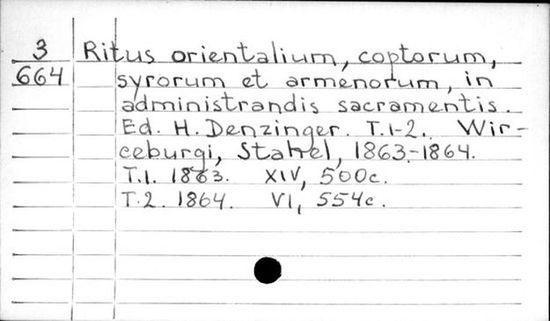 3 Ritus orientalium, coptorum,
664 syrorum et armenorum, in
administrandis sacramentis.
Ed. H. Denzinger. T.1-2. Wir-
ceburgi, Stahel, 1863-1864.
T.1. 1863. XIV, 500c.
T.2. 1864. VI, 554c.